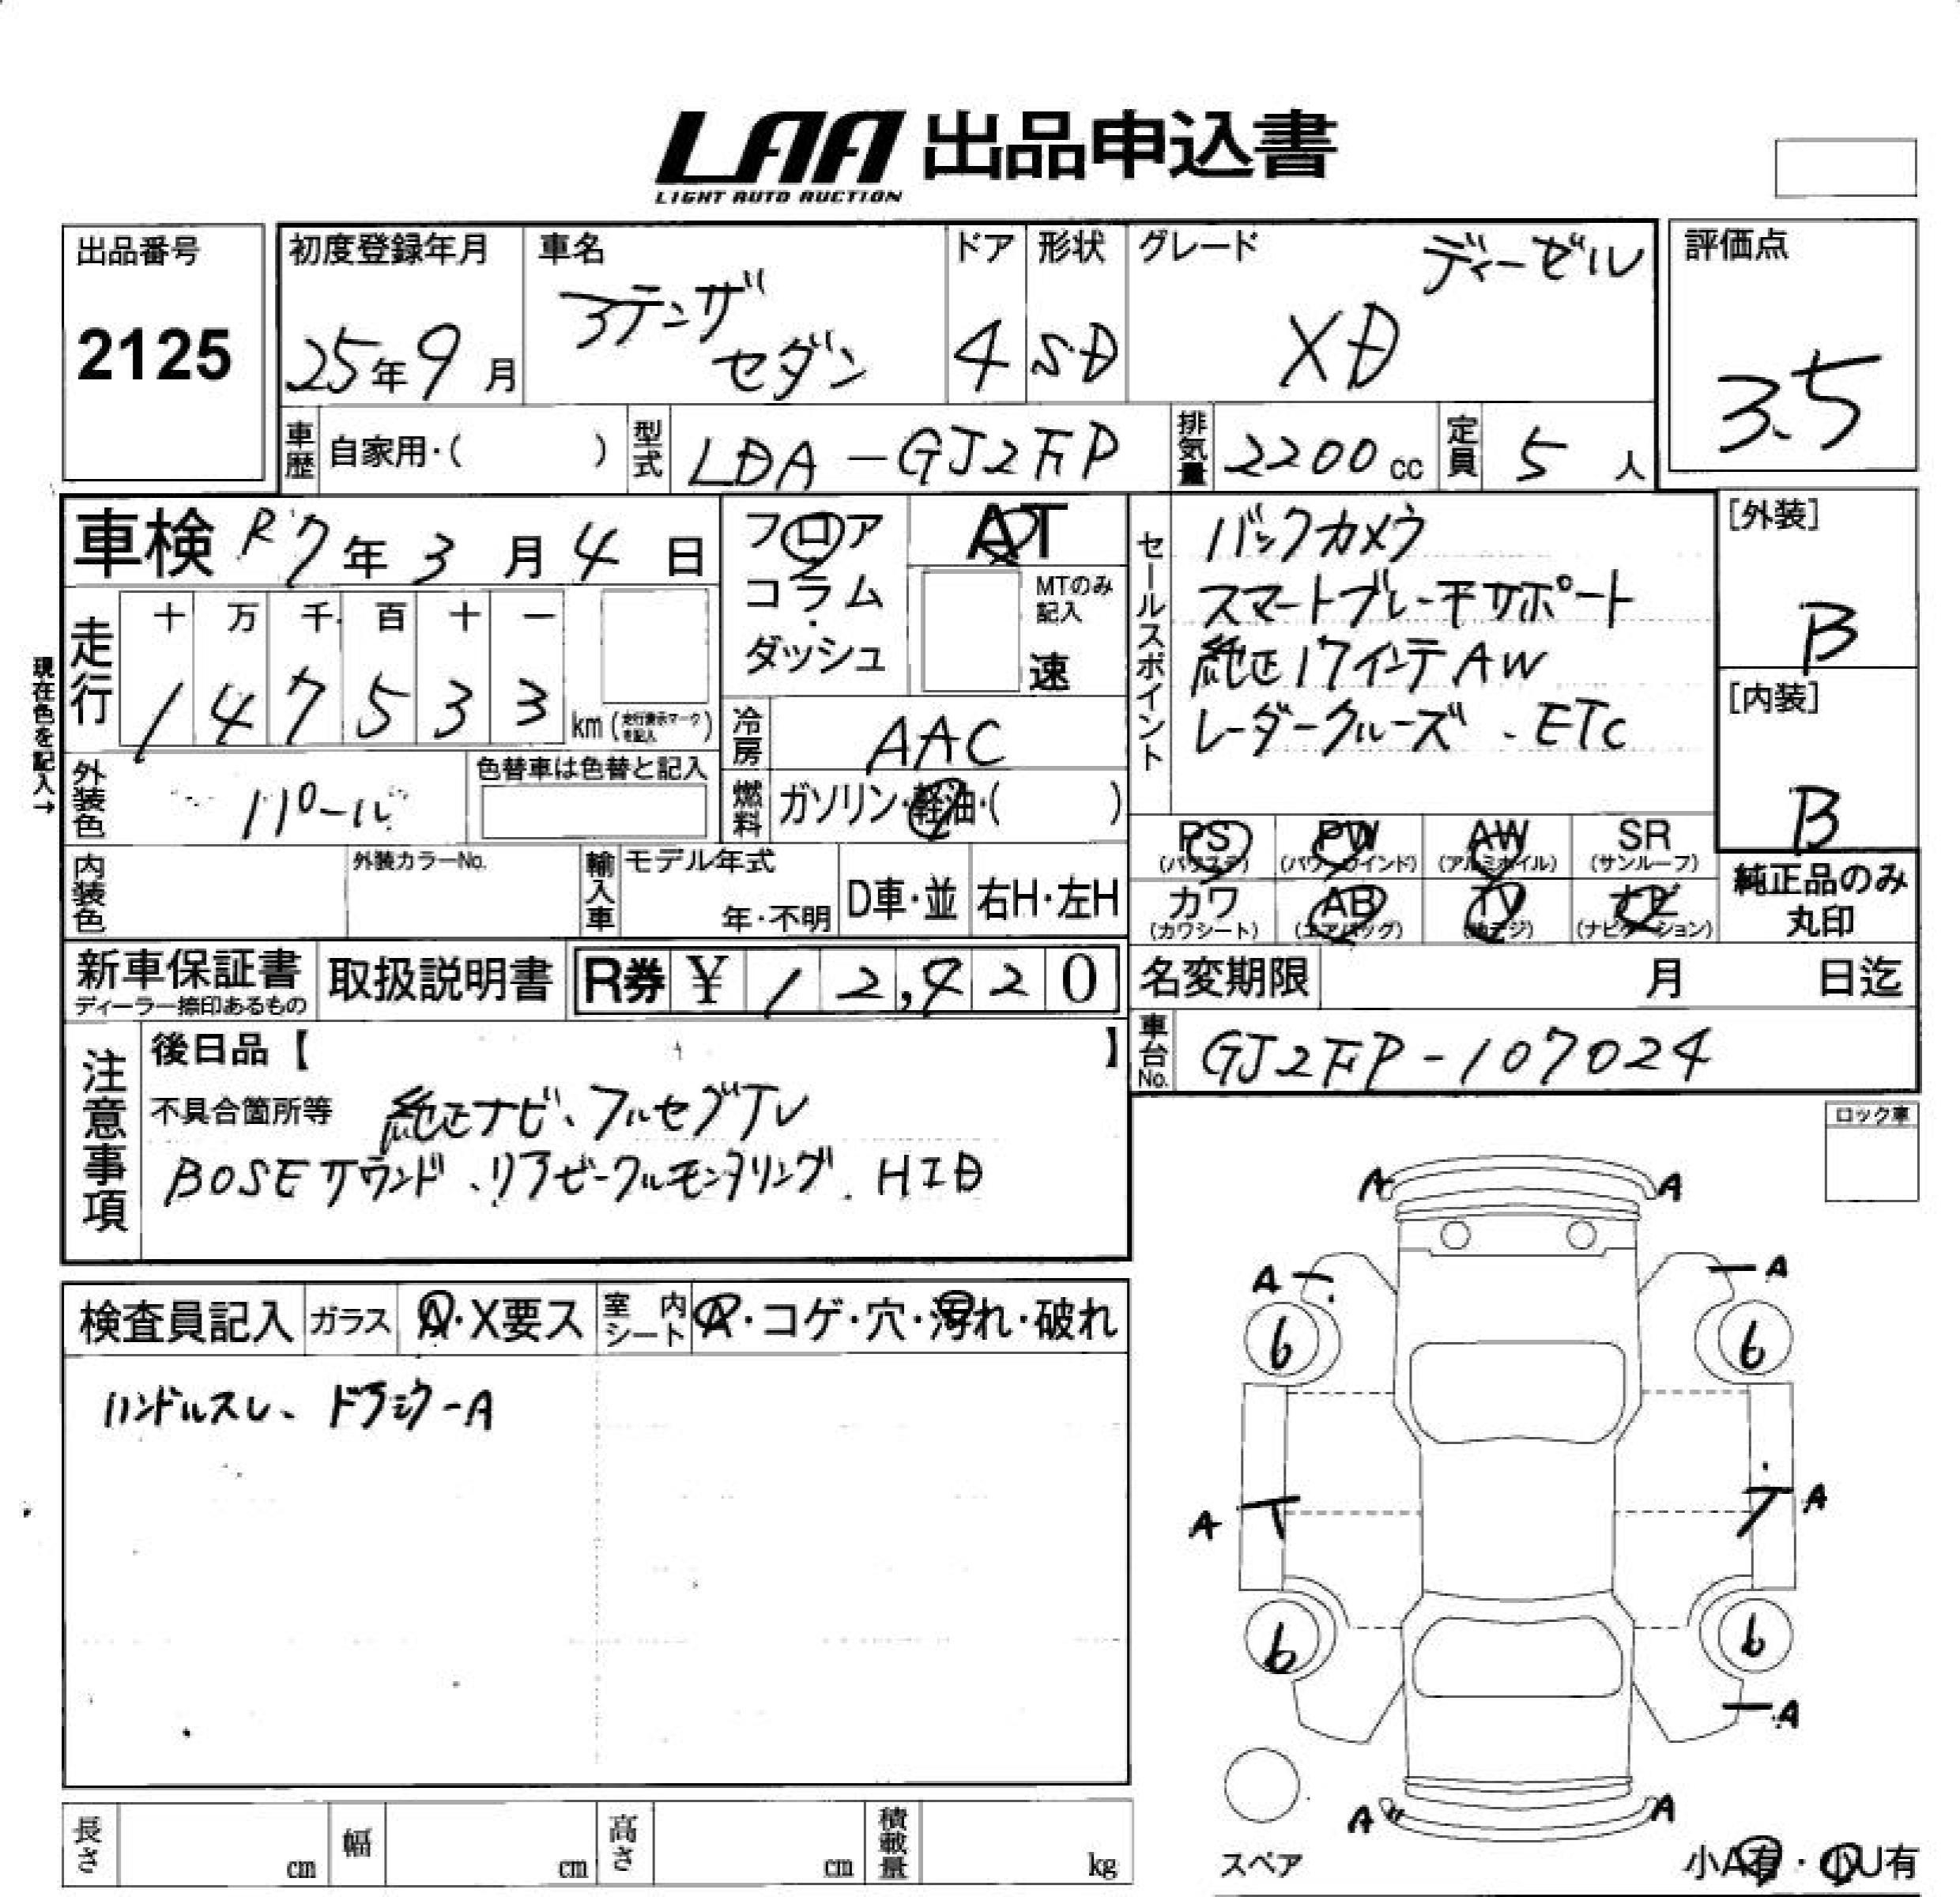 LAA 出品申込書
LIGHT AUTO AUCTION
出品番号
2125
初度登録年月
25年9月
車名
アテンザ
セダン
ドア
4
形状
SD
グレード
ディーゼル
XD
評価点
3.5
車歴 自家用・( )
型式 LDA-GJ2FP
排気量 2200cc
定員 5人
車検 R7年3月4日
フロア
コラム
ダッシュ
AT
MTのみ
記入
速
現在色を記入→
走行
十 万 千 百 十 一
1 4 7 5 3 3 km (走行表示マークを記入)
冷房 AAC
外装色 パール
色替車は色替と記入
燃料 ガソリン・軽油・( )
セールスポイント
バックカメラ
スマートブレーキサポート
純正17インチAW
レーダークルーズ、ETC
[外装]
B
[内装]
B
PS (パワステ)
PW (パワーウインド)
AW (アルミホイル)
SR (サンルーフ)
カワ (カワシート)
AB (エアバッグ)
TV (テレビ)
ナビ (ナビゲーション)
純正品のみ
丸印
内装色
外装カラーNo.
輸入車
モデル年式
年・不明
D車・並
右H・左H
新車保証書
ディーラー捺印あるもの
取扱説明書
R券 ¥ 12,920
名変期限 月 日迄
車台No. GJ2FP-107024
注意事項
後日品【 】
不具合箇所等 純正ナビ、フルセグTV
BOSEサウンド、リアビークルモニタリング、HID
ロック車
検査員記入
ガラス A・X要ス
室内シート A・コゲ・穴・汚れ・破れ
ハンドルスレ、ドラミラーA
A A
A A
6 6
A A
6 6
A
A A
スペア
小A有・小U有
長さ cm
幅 cm
高さ cm
積載量 kg